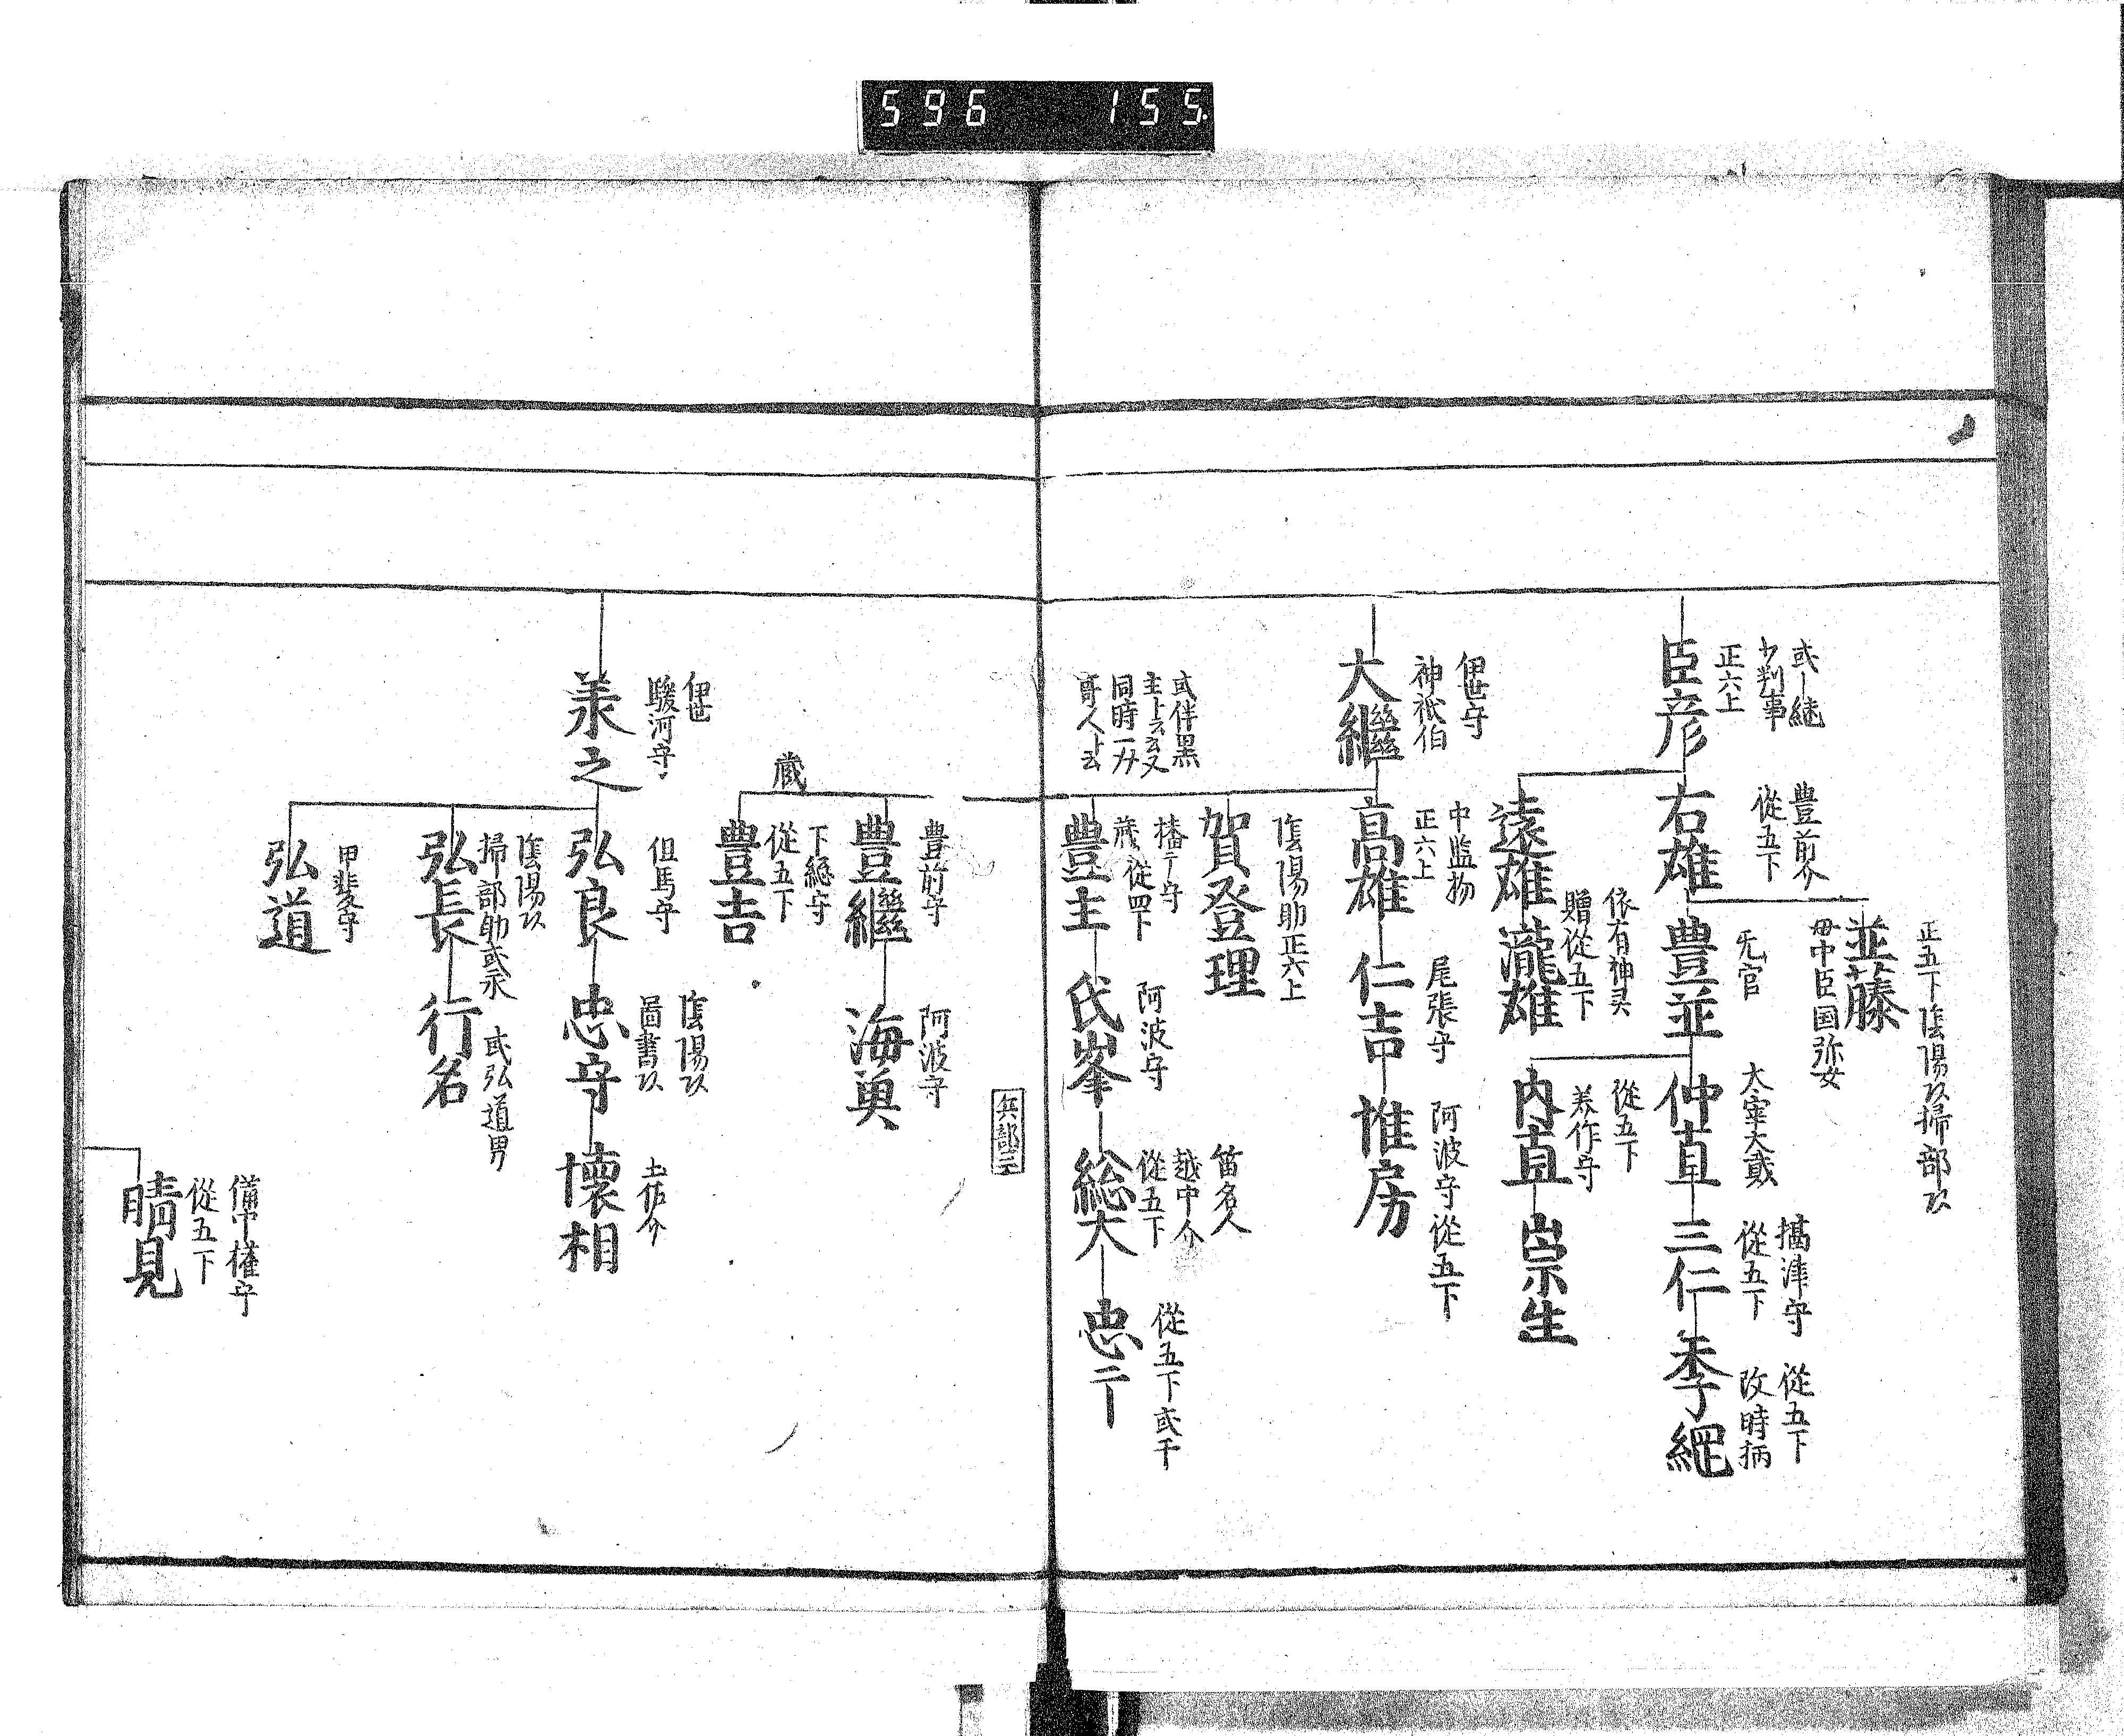 596 155.
臣彦
正六上
少判事
或―継
右雄
從五下
豊前介
並藤
正五下陰陽頭掃部頭
母中臣国弥女
豊並
无官
仲直
大宰大貳
三仁
從五下
攝津守
季綱
從五下
改時柄
内直
從五下
美作守
崇生
遠雄
瀧雄
依有神灵
贈從五下
大繼
伊世守
神祇伯
高雄
中監物
正六上
仁吉
尾張守
惟房
阿波守從五下
賀登理
陰陽助正六上
豊主
播广守
從四下
或伴黒
主ト云々又
同時一
哥人ト云
氏峯
阿波守
総大
笛名人
越中介
從五下
忠二
從五下或千
兵部三
豊繼
豊前守
海奥
阿波守
豊吉
下総守
從五下
蔵
兼之
伊世
駿河守
弘良
但馬守
忠守
陰陽頭
圖書頭
懐相
土佐介
弘長
陰陽頭
掃部助或永
行名
或弘道男
弘道
甲斐守
晴見
備中權守
從五下